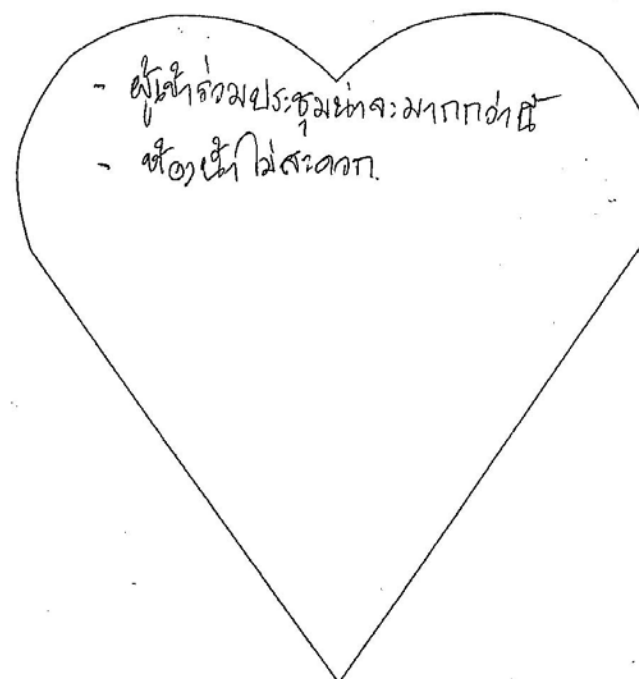 - ผู้เข้าร่วมประชุมน่าจะมากกว่านี้
- ห้องน้ำไม่สะดวก.